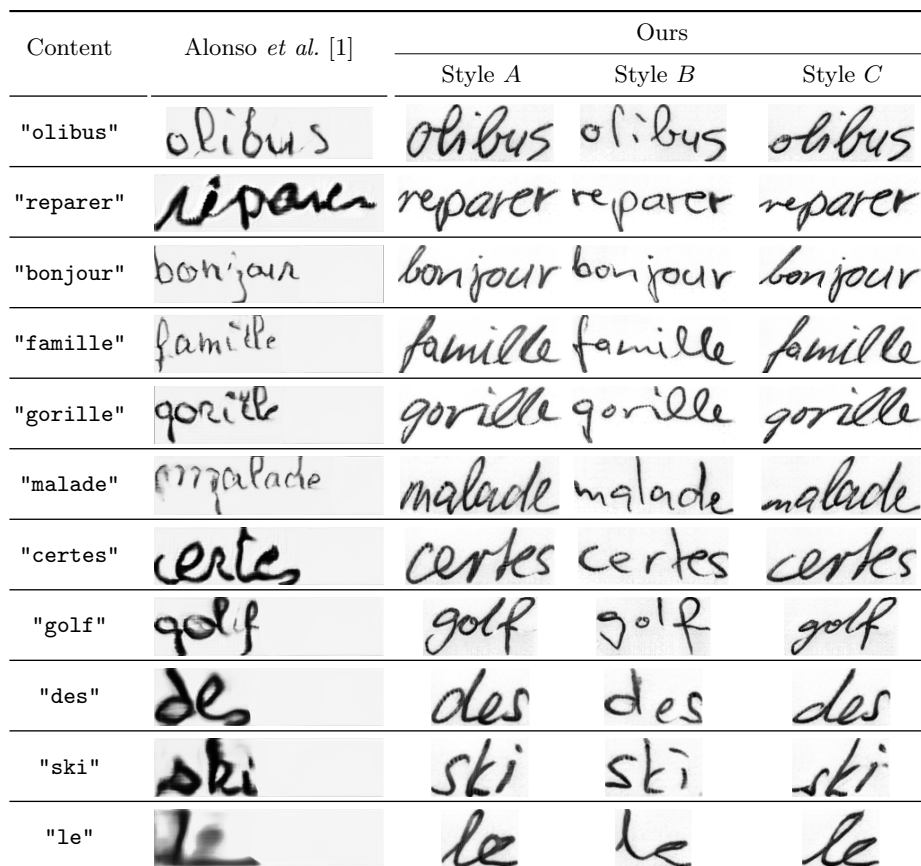 Content Alonso et al. [1] Ours
Style A Style B Style C
"olibus" olibus olibus olibus olibus
"reparer" reparer reparer reparer reparer
"bonjour" bonjour bonjour bonjour bonjour
"famille" famille famille famille famille
"gorille" gorille gorille gorille gorille
"malade" malade malade malade
"certes" certes certes certes certes
"golf" golf golf golf
"des" des des des des
"ski" ski ski ski ski
"le" le le le